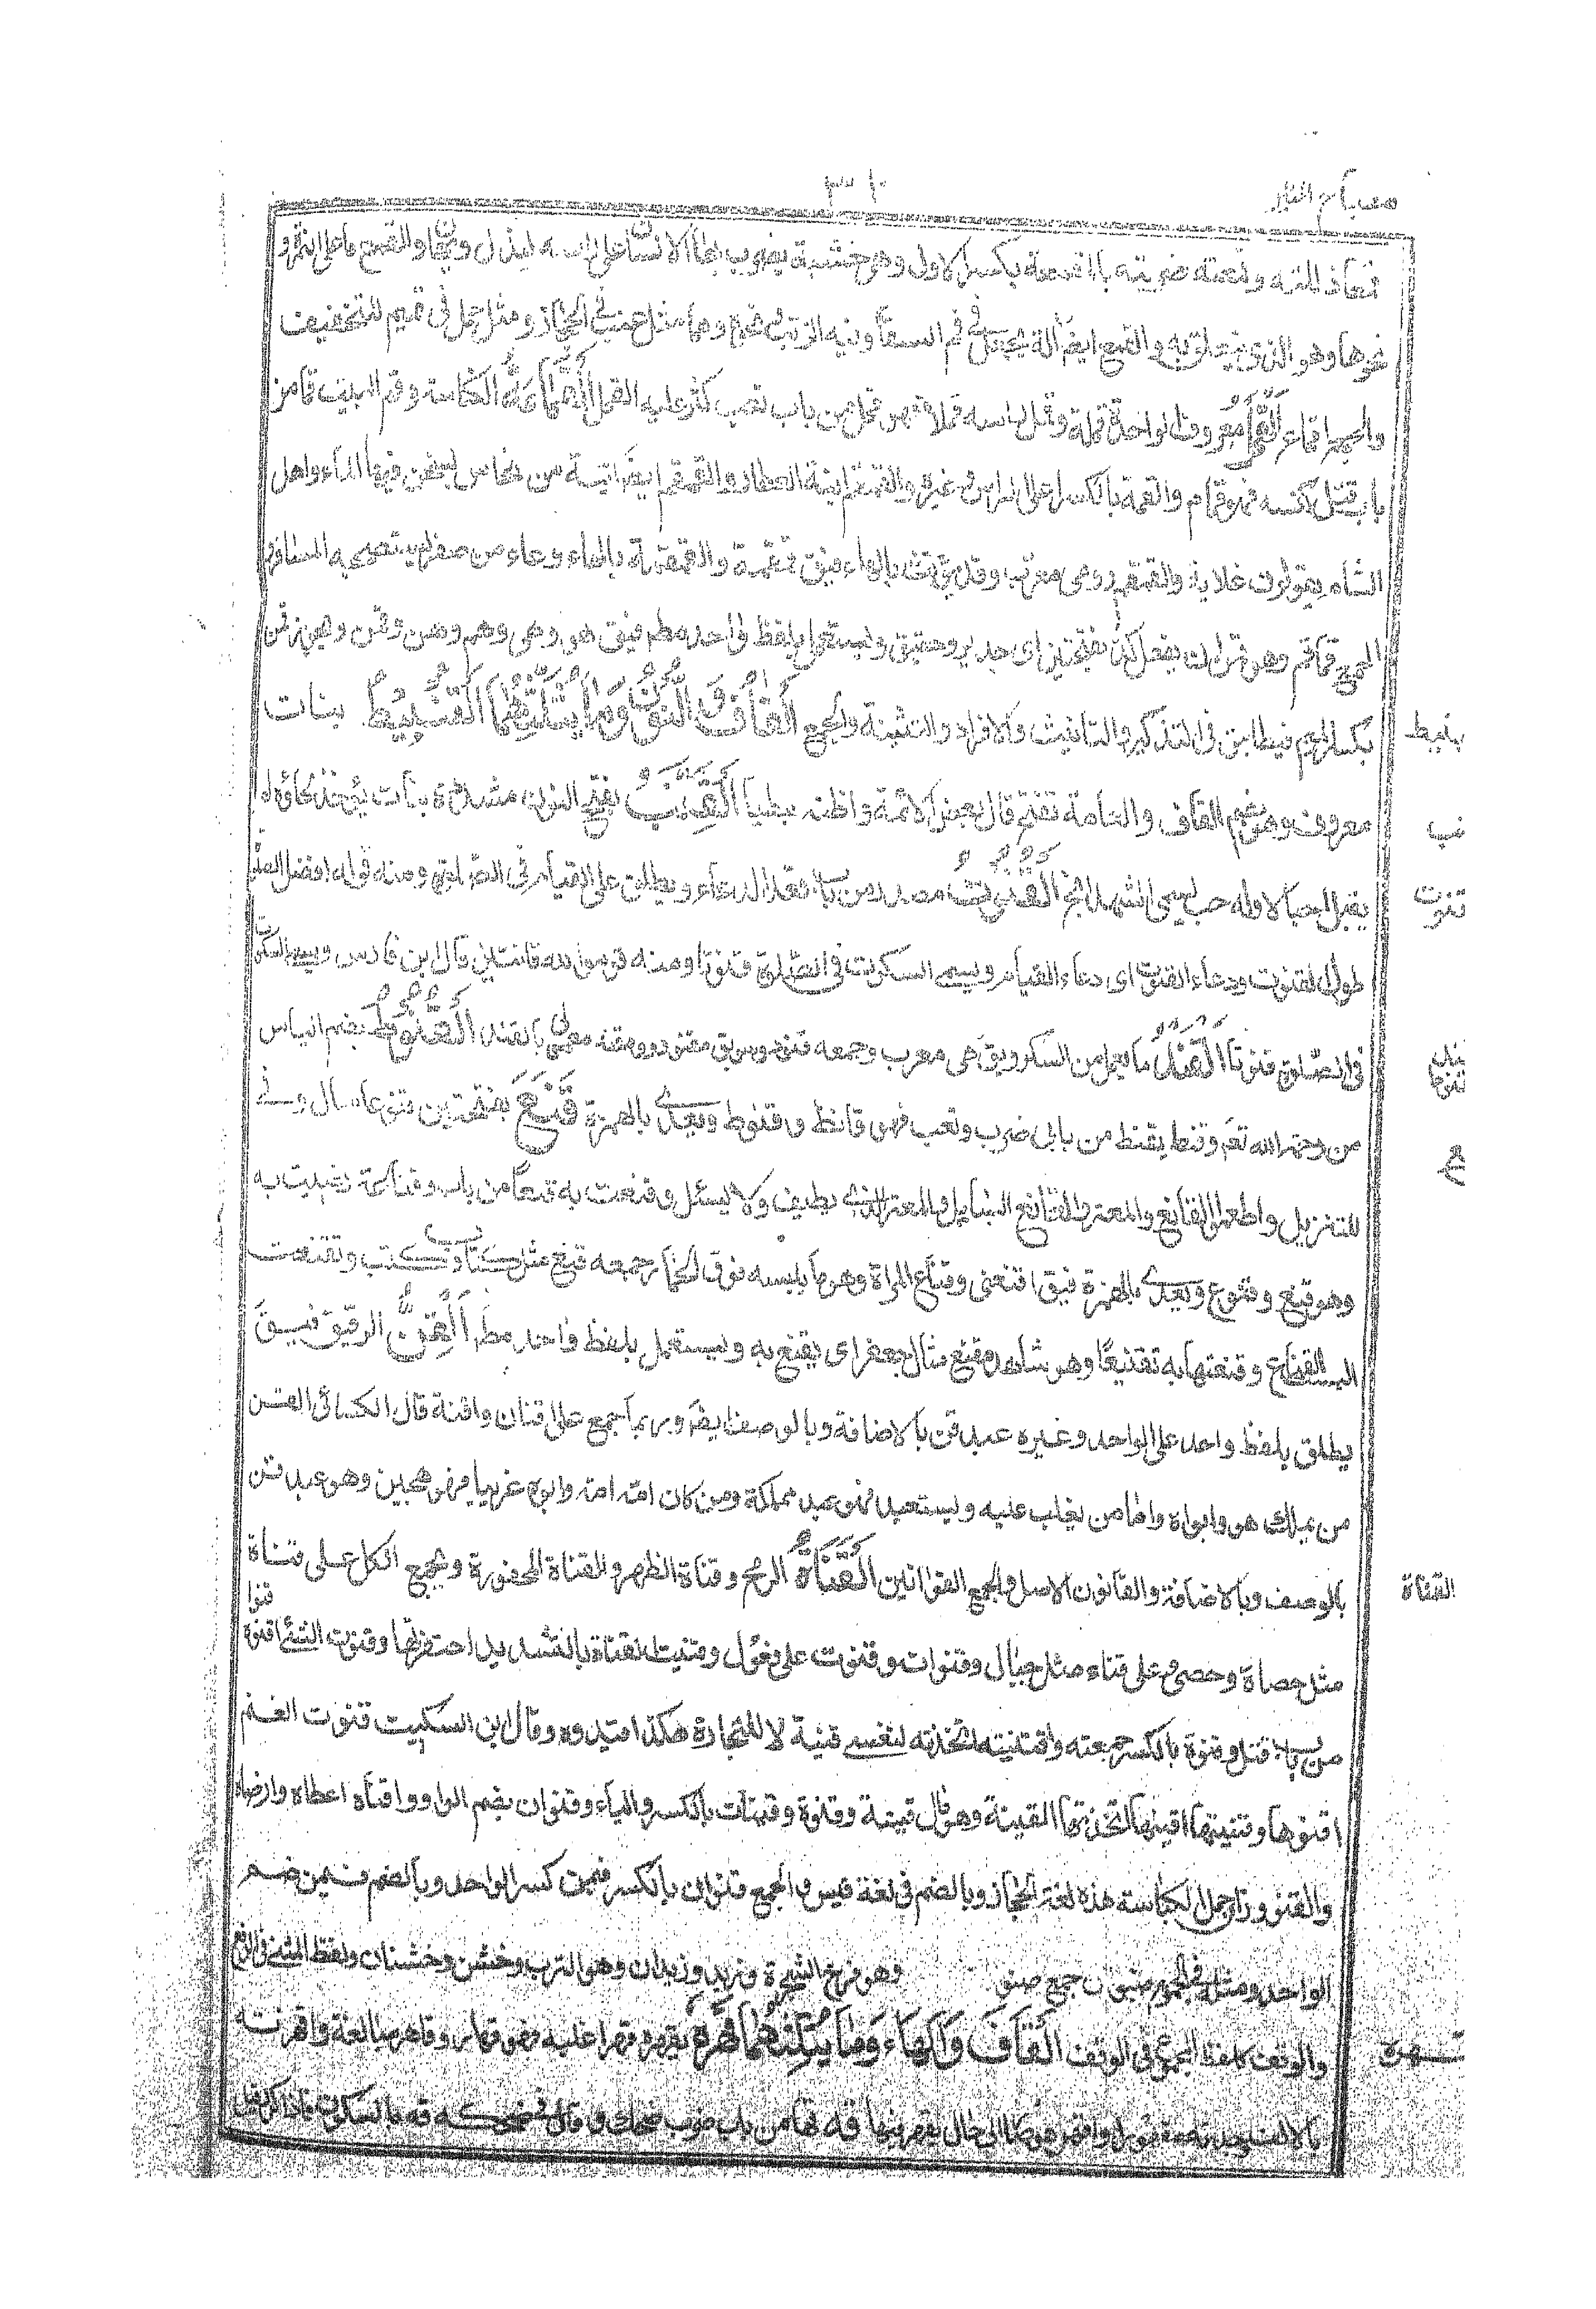 مصباح المنير
فى هاذللته وقمعته ضربته بالمقمعة بكسر الاول وهى خشبة يضرب بها الانسان على راسه ليذل ويهان والقمع ما على التمرة و
نحوها وهو الذى يتعلق به والقمع ايضا آلة تجعل فى فم السقاء ويصب فيه الزيت وهما مثل عنب فى الحجاز ومثل حمل فى تميم للتخفيف
والجمع اقماع القمل معروف الواحدة قملة وقمل راسه قملا فهو قمل من باب تعب كثر عليه القمل القمامة الكناسة وقم البيت قما من
باب قتل كنسه فهو قمام والقمة بالكسر اعلى الراس وغيره والقمقم آنية العطار والقمقم ايضا آنية من نحاس يسخن فيها الماء واهل
الشام يقولون غلاية والقمقم رومى معرب وقد يؤنث بالهاء فيق قمقمة والقمقمة بالهاء وعاء من صفر يستصحبه المسافر
الجمع قماقم وهو قمن ان يفعل كذا بفتحتين اى جدير وحقيق ويستعمل بلفظ واحد مطلقا فيق هو وهى وهم وهن قمن وهو قمن
بكسر الميم فيطابق فى التذكير والتانيث والافراد والتثنية والجمع القاف والنون وما يثلثهما القنبيط نبات
بنيط
معروف وهو بضم القاف والعامة تفتح قال بعض الائمة واظنه نبطيا القنب بفتح النون مشددة نبات يؤخذ لحاؤه
نب
يفتل حبالا وله حب يسمى الشهدانج القنوت مصدر من باب قعد الدعاء ويطلق على القيام فى الصلوة ومنه قوله افضل الصلوة
قنوت
طول القنوت ودعاء القنوت اى دعاء القيام ويسمى السكوت فى الصلوة قنوتا ومنه قوموا لله قانتين قال ابن فارس ويسمى السكوت
فى الصلوة قنوتا القند ما يعمل من السكر ويق هى معرب وجمعه قنود وسويق مقنود ومقند معمول بالقند القنوط بضم الياس
قند
قنوط
من رحمة الله تعم وقنط يقنط من بابى ضرب وتعب فهو قانط وقنوط ويعدى بالهمزة قنع بفتحتين قنوعا سال وفى
ع
التنزيل واطعموا القانع والمعتر فالقانع السايل والمعتر الذى يطيف ولا يسئل وقنعت به قنعا من باب وقناعة رضيت به
وهو قنع وقنوع ويعدى بالهمزة فيق اقنعنى وقناع المراة وهو ما يلبسه فوق الخمار جمعه قنع مثل كتاب وكتب وتقنعت
البست القناع وقنعتها به تقنيعا وهو شاهد مقنع مثال جعفر اى يقنع به ويستعمل بلفظ واحد مطلقا القن الرقيق فيق
يطلق بلفظ واحد على الواحد وغيره عبد قن بالاضافة وبالوصف ايضا وربما جمع على اقنان واقنة قال الكسائى القن
من يملك هو وابواه واما من يغلب عليه ويستعبد فهو عبد مملكة ومن كان امه امة وابوه عربيا فهو هجين وهو عبد قن
بالوصف وبالاضافة والقانون الاصل والجمع القوانين القناة الرمح وقناة الظهر والقناة المحفورة ويجمع الكل على قناة
القناة
مثل حصاة وحصى وعلى قناء مثل جبال وقنوات وقنوت على فعول وقنيت القناة بالتشديد احتفرتها وقنوت الشئ اقنوه قنوا
من باب قتل وقنوة بالكسر جمعته واقتنيته اتخذته لنفسى قنية لا للتجارة هكذا قيدوه وقال ابن السكيت قنوت الغنم
اقنوها وقنيتها اقنيها اتخذتها للقنية وهو مال قنية وقنوة وقنيان بالكسر والياء وقنوان بضم الواو واقناه اعطاه وارضاه
والقنو وزان حمل الكباسة هذه لغة الحجاز وبالضم فى لغة قيس والجمع قنوان بالكسر فيمن كسر الواحد وبالضم فيمن ضم
الواحد ومثله فى الجمع صنوان جمع صنو وهو فرخ الشجرة ورئد ورئدان وهو الترب وخشن وخشنان ولفظ المثنى فى الرفع
والوقف كلفظ المجموع فى الوقف القاف والهاء وما يثلثهما قهره يقهره قهرا غلبه فهو قاهر وقاهر مبالغة واقهرته
قهره
بالالف وجدته مقهورا واقهر هو صار الى حال يقهر فيها قهقه